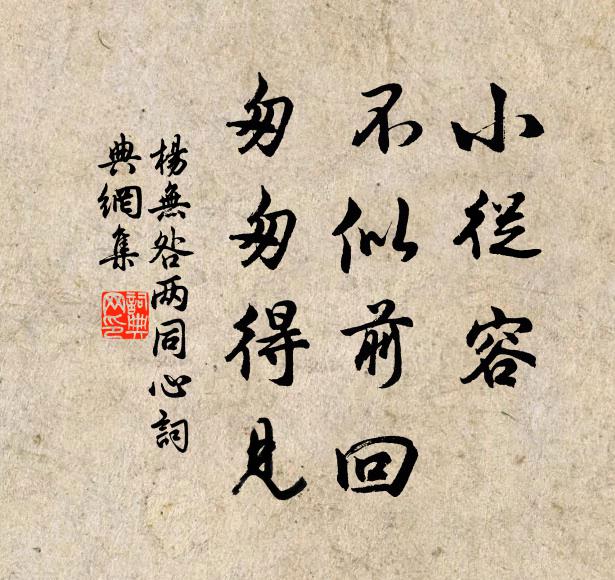 小從容
不似前回
匆匆得見
楊無咎两同心詞
典網集
詞典网印